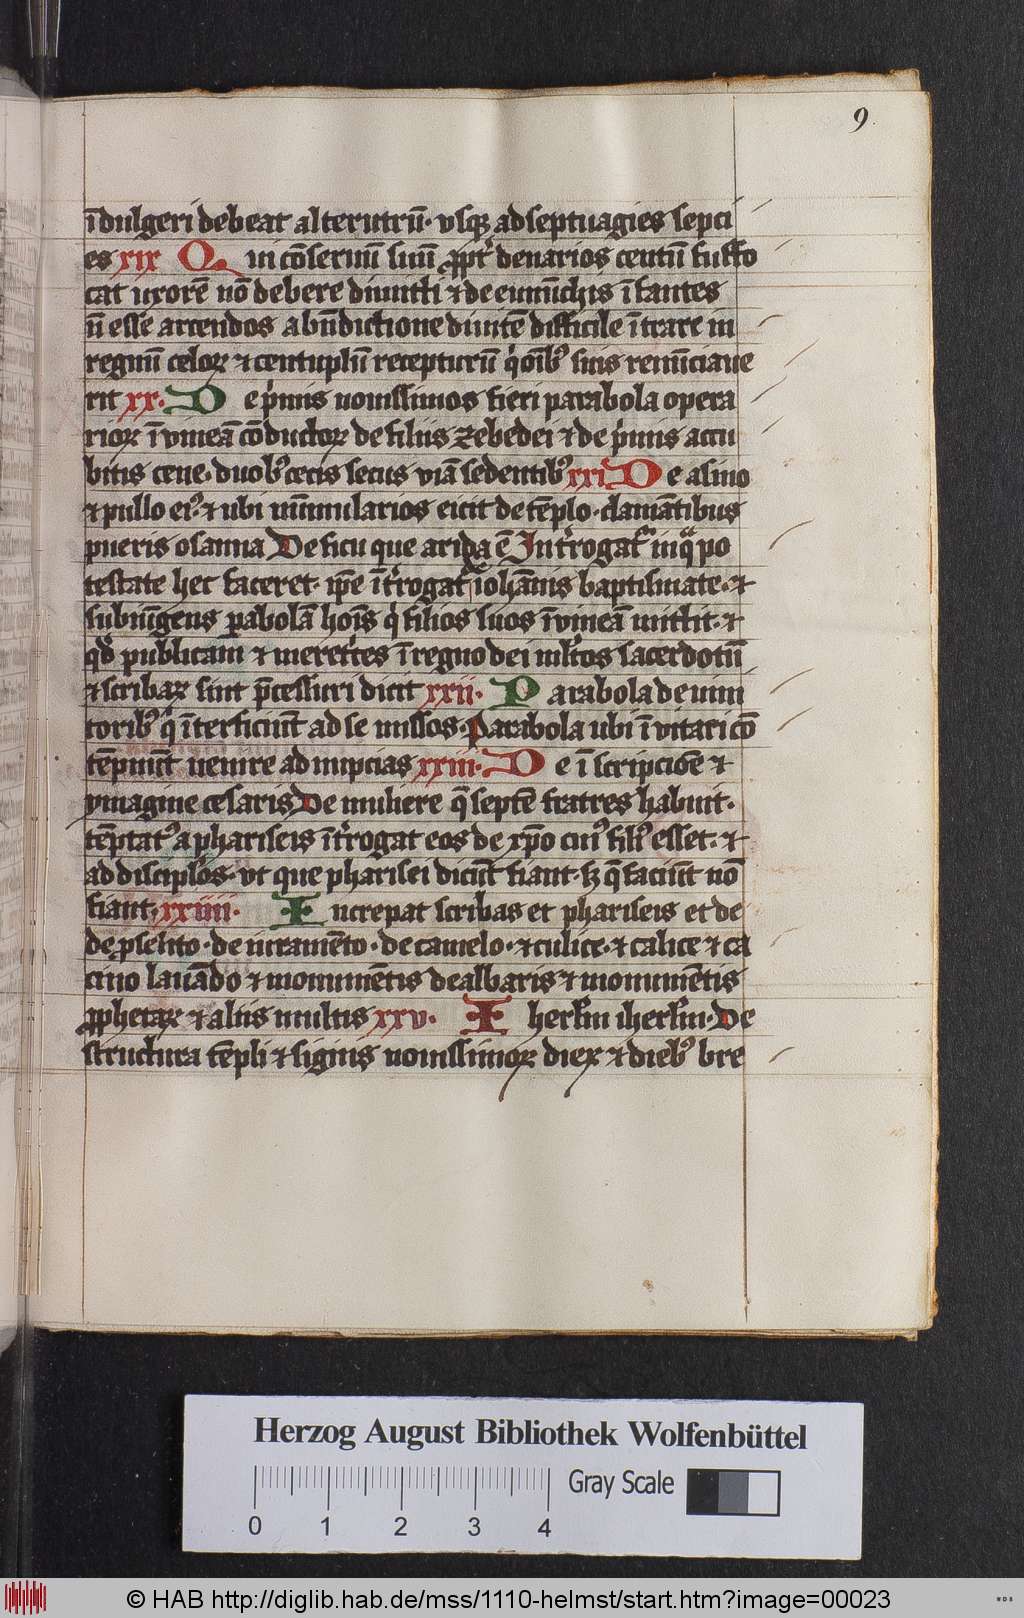 9.
īdulgeri debeat alterutrū· vsqꝫ ad septuagies sepci
es xix Qui cōseruū suū ꝓpt' denarios centū suffo
cat uxorē nō debere dimitti ⁊ de eunuchis īfantes
n̄ esse arcendos a bn̄dictione diuitē difficile ītrare in
regnū celoꝝ ⁊ centuplū recepturū q̇ oīb' suis renūciaue
rit xx· De p̍mis nouissimos fieri parabola opera
rioꝝ ī vineā cōductoꝝ de filiis zebedei ⁊ de p̍mis accu
bitis cene· duob' cecis secus viā sedentib' xxi De asino
⁊ pullo ei'· ⁊ ubi nūmularios eicit de tēplo· clamātibus
pueris osanna De ficu que arida ē Int'rogat' in qͣ po
testate hec faceret· ip̄e īt'rogat' iohānis baptismate· ⁊
subiūgens ꝑabolā hoīs q̍ filios suos ī vineā mittit· ⁊
qđ publicani ⁊ meretˈces ī regno dei
⁊ scribaꝝ sint p̄cessuri dicit xxii· Parabola de vini
toribꝰ q̍ īterficiūt ad se missos· Parabola ubi īvitari cō
tēpnūt uenire ad nupcias xxiii· De īscripcioē ⁊
ymagine cesaris De muliere q̄ septē fratres habuit·
tēptatꝰ a phariseis īt'rogat eos de xp̄o cuiꝰ filiꝰ esset· ⁊
ad discip̄los· vt que pharisei dicūt fiant· sꝫ q̄ faciūt nō
fiant· xxiiii· Increpat scribas et phariseis et de
de pselito· de iuramēto· de camelo· ⁊ culice· ⁊ calice ⁊ ca
tino lauādo ⁊ monumētis dealbatis ⁊ monumētis
ꝓphetaꝝ ⁊ aliis multis xxv· Iherl̄m iherl̄m· De
structura tēpli ⁊ signis nouissimoꝝ dieꝝ ⁊ diebꝰ bre
Herzog August Bibliothek Wolfenbüttel
Gray Scale
0 1 2 3 4
© HAB http://diglib.hab.de/mss/1110-helmst/start.htm?image=00023